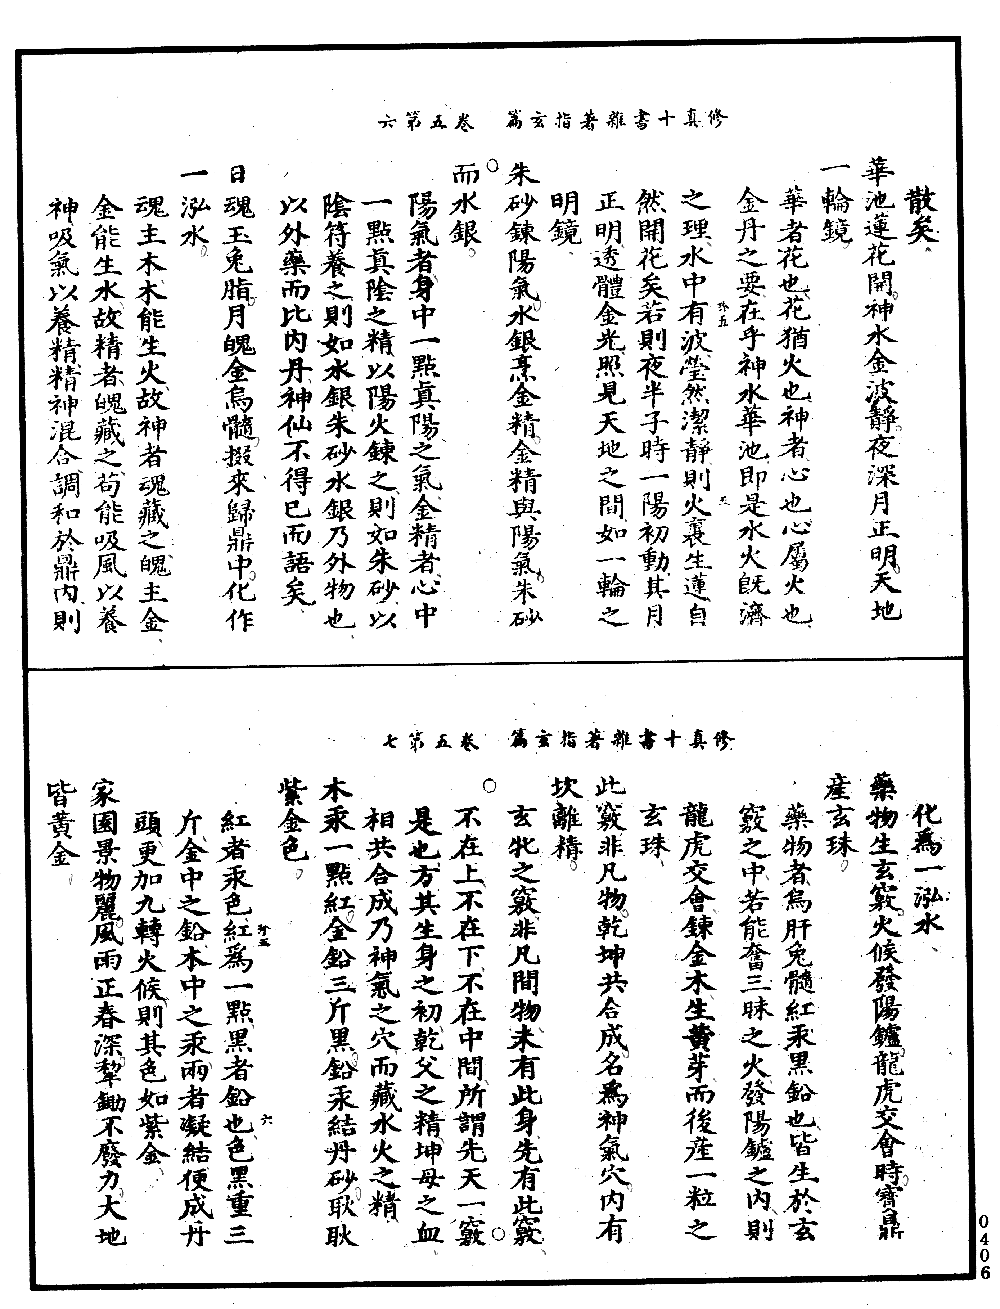 修真十書雜著指玄篇　卷五第六
散矣
華池蓮花開神水金波靜夜深月正明天地
一輪鏡
華者花也花猶火也神者心也心屬火也
金丹之要在乎神水華池即是水火既濟
之理水中有波瑩然潔靜則火裏生蓮自
然開花矣若則夜半子時一陽初動其月
正明透體金光照見天地之間如一輪之
明鏡
朱砂鍊陽氣水銀烹金精金精與陽氣朱砂
而水銀
陽氣者身中一點真陽之氣金精者心中
一點真陰之精以陽火鍊之則如朱砂以
陰符養之則如水銀朱砂水銀乃外物也
以外藥而比內丹神仙不得已而語矣
日魂玉兔脂月魄金烏髓掇來歸鼎中化作
一泓水
魂主木木能生火故神者魂藏之魄主金
金能生水故精者魄藏之苟能吸風以養
神吸氣以養精精神混合調和於鼎內則
修真十書雜著指玄篇　卷五第七
化爲一泓水
藥物生玄竅火候發陽鑪龍虎交會時寶鼎
產玄珠
藥物者烏肝兔髓紅汞黑鉛也皆生於玄
竅之中若能奮三昧之火發陽鑪之內則
龍虎交會鍊金木生黃芽而後產一粒之
玄珠
此竅非凡物乾坤共合成名爲神氣穴內有
坎離精
玄牝之竅非凡間物未有此身先有此竅
不在上不在下不在中間所謂先天一竅
是也方其生身之初乾父之精坤母之血
相共合成乃神氣之穴而藏水火之精
木汞一點紅金鉛三斤黑鉛汞結丹砂耿耿
紫金色
紅者汞色紅爲一點黑者鉛也色黑重三
斤金中之鉛木中之汞兩者凝結便成丹
頭更加九轉火候則其色如紫金
家園景物麗風雨正春深犁鋤不廢力大地
皆黃金
0406